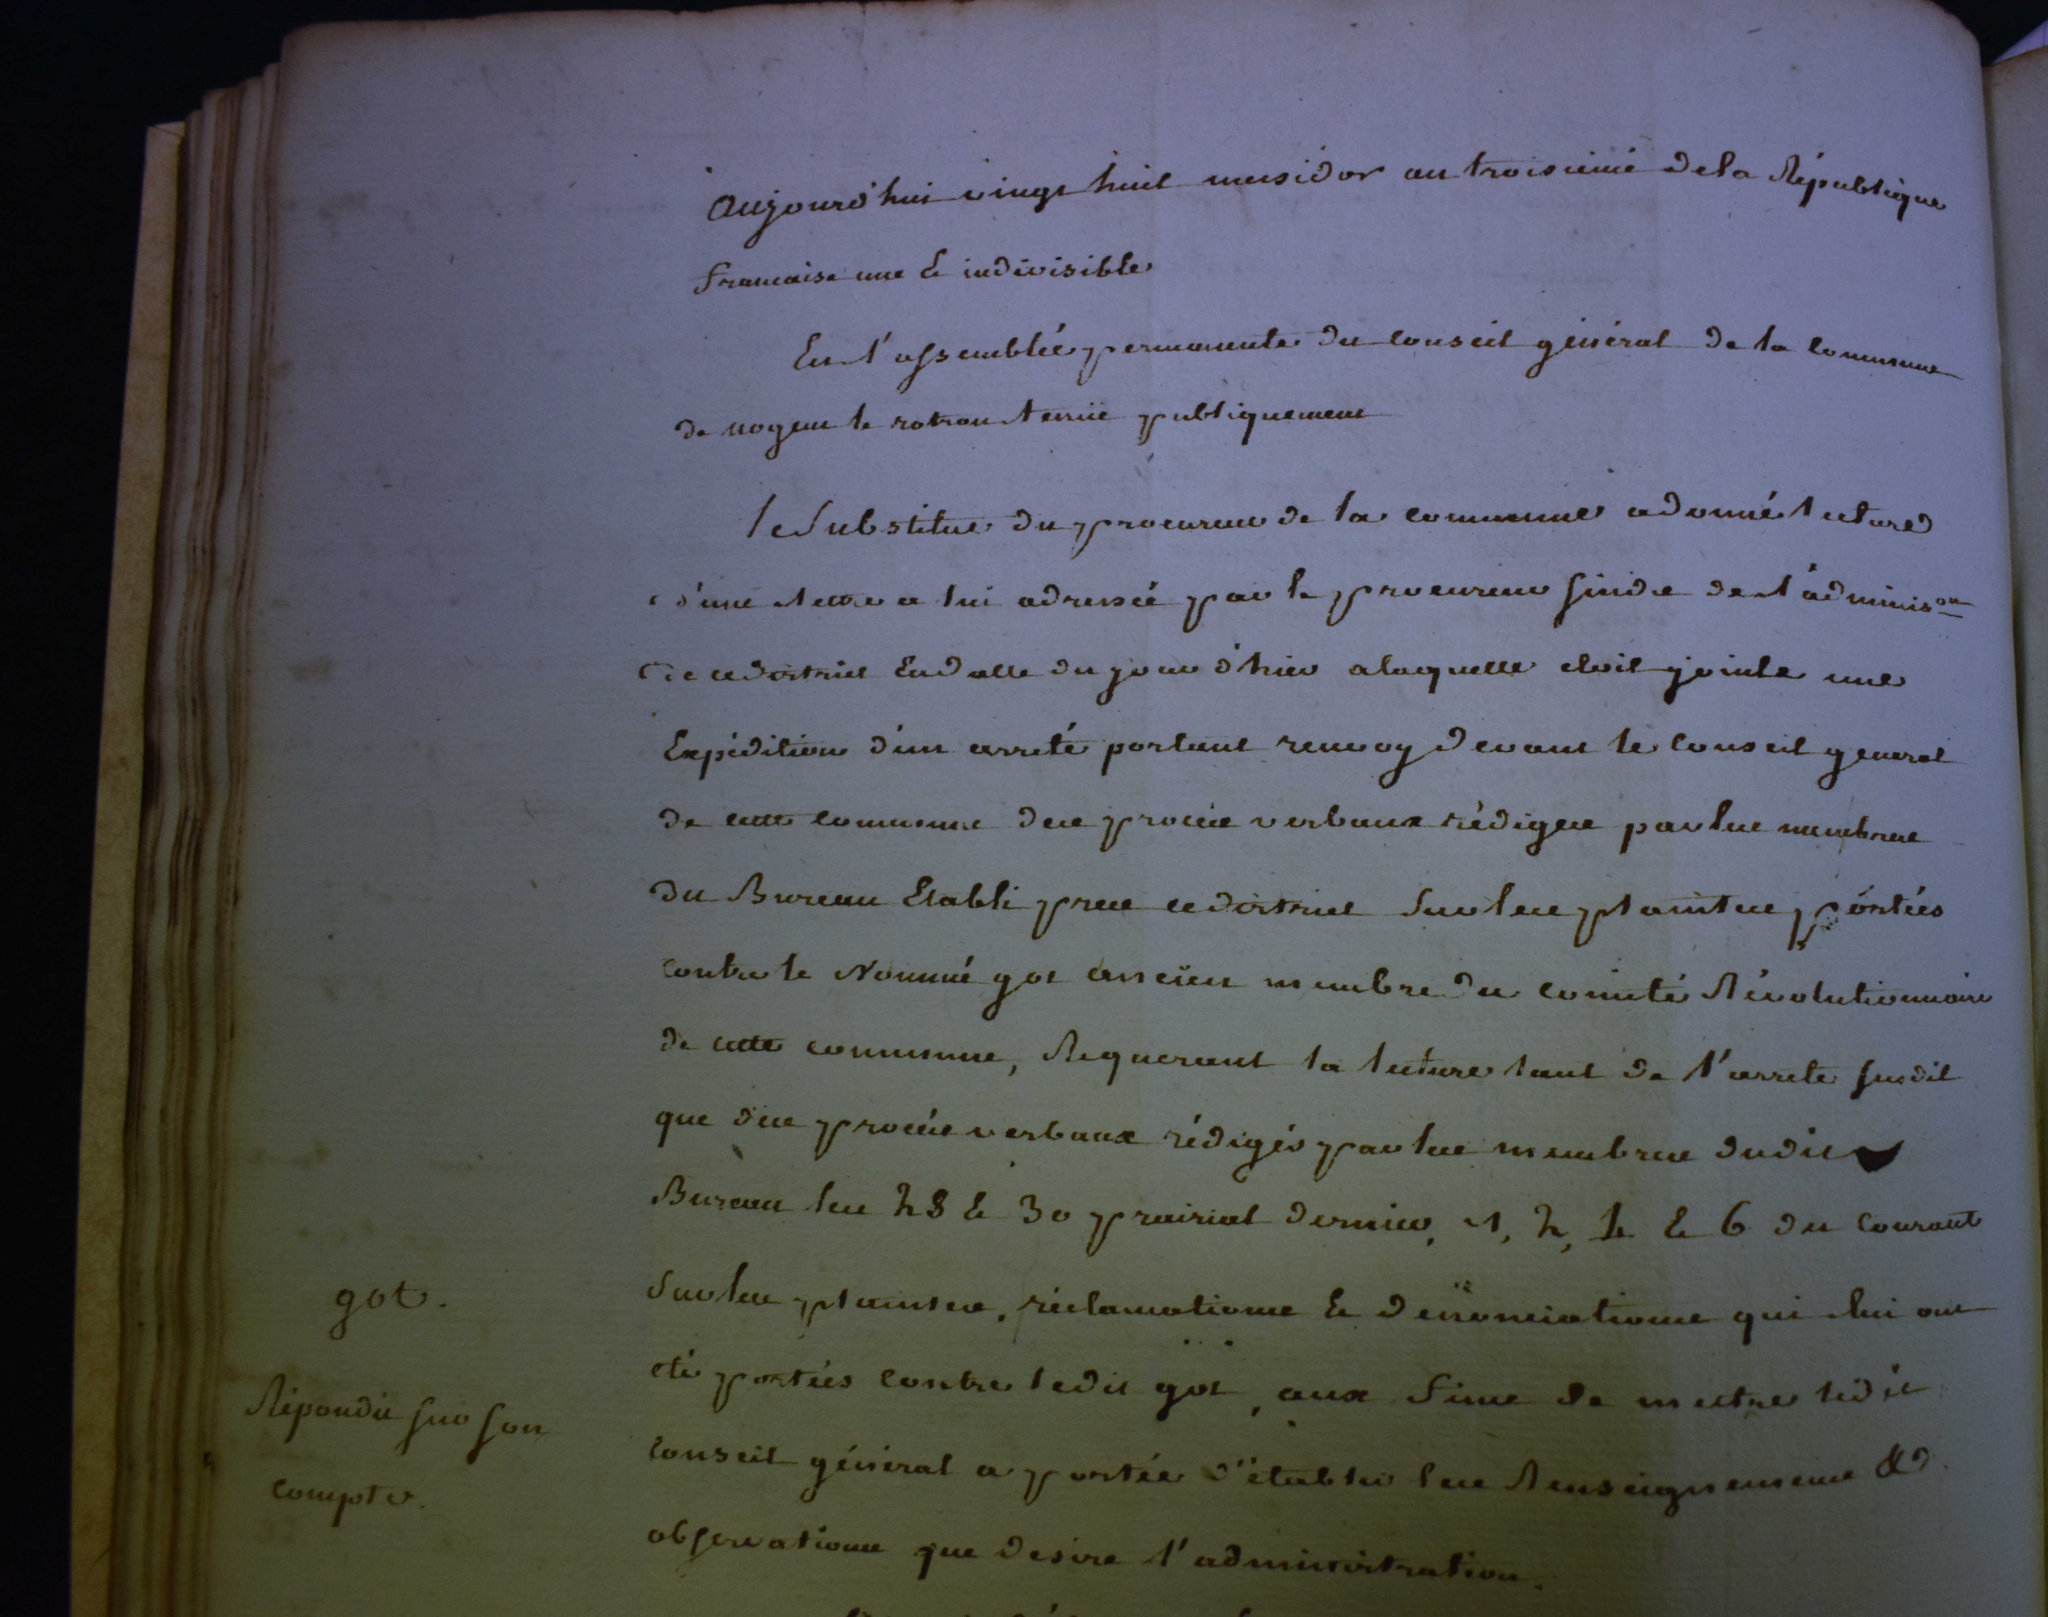 Aujourd'hui vingt huit messidor an troisieme de la République
francaise une & indivisible
En l'assemblée permanente du conseil général de la commune
de nogent le rotrou tenüe publiquement
le Substitut du procureur de la commune a donné lecture
d'une lettre a lui adressée par le procureur sindic de l'adminis.on
de ce district En datte du jour d'hier a laquelle etoit jointe une
Expédition d'un arreté portant renvoy devant le Conseil general
de cette commune des procès verbaux rédigés par les membres
du Bureau Etabli près ce district Sur les plaintes portées
contre le Nommé got ancïen membre du comité Révolutionnaire
de cette commune, Requerant la lecture tant de l'arreté susdit
que des procès verbaux rédigés par les membres dudit
Bureau les 28 & 30 prairial dernier, 1, 2, 4 & 6 du Courant
Sur les plaintes, réclamations & dénonciations qui lui ont
got.
eté portées contre ledit got, aux fins de mettre ledit
Répondit sur son
Conseil général a portée d'établir les Renseignements &
compte.
observations que desire l'administration.